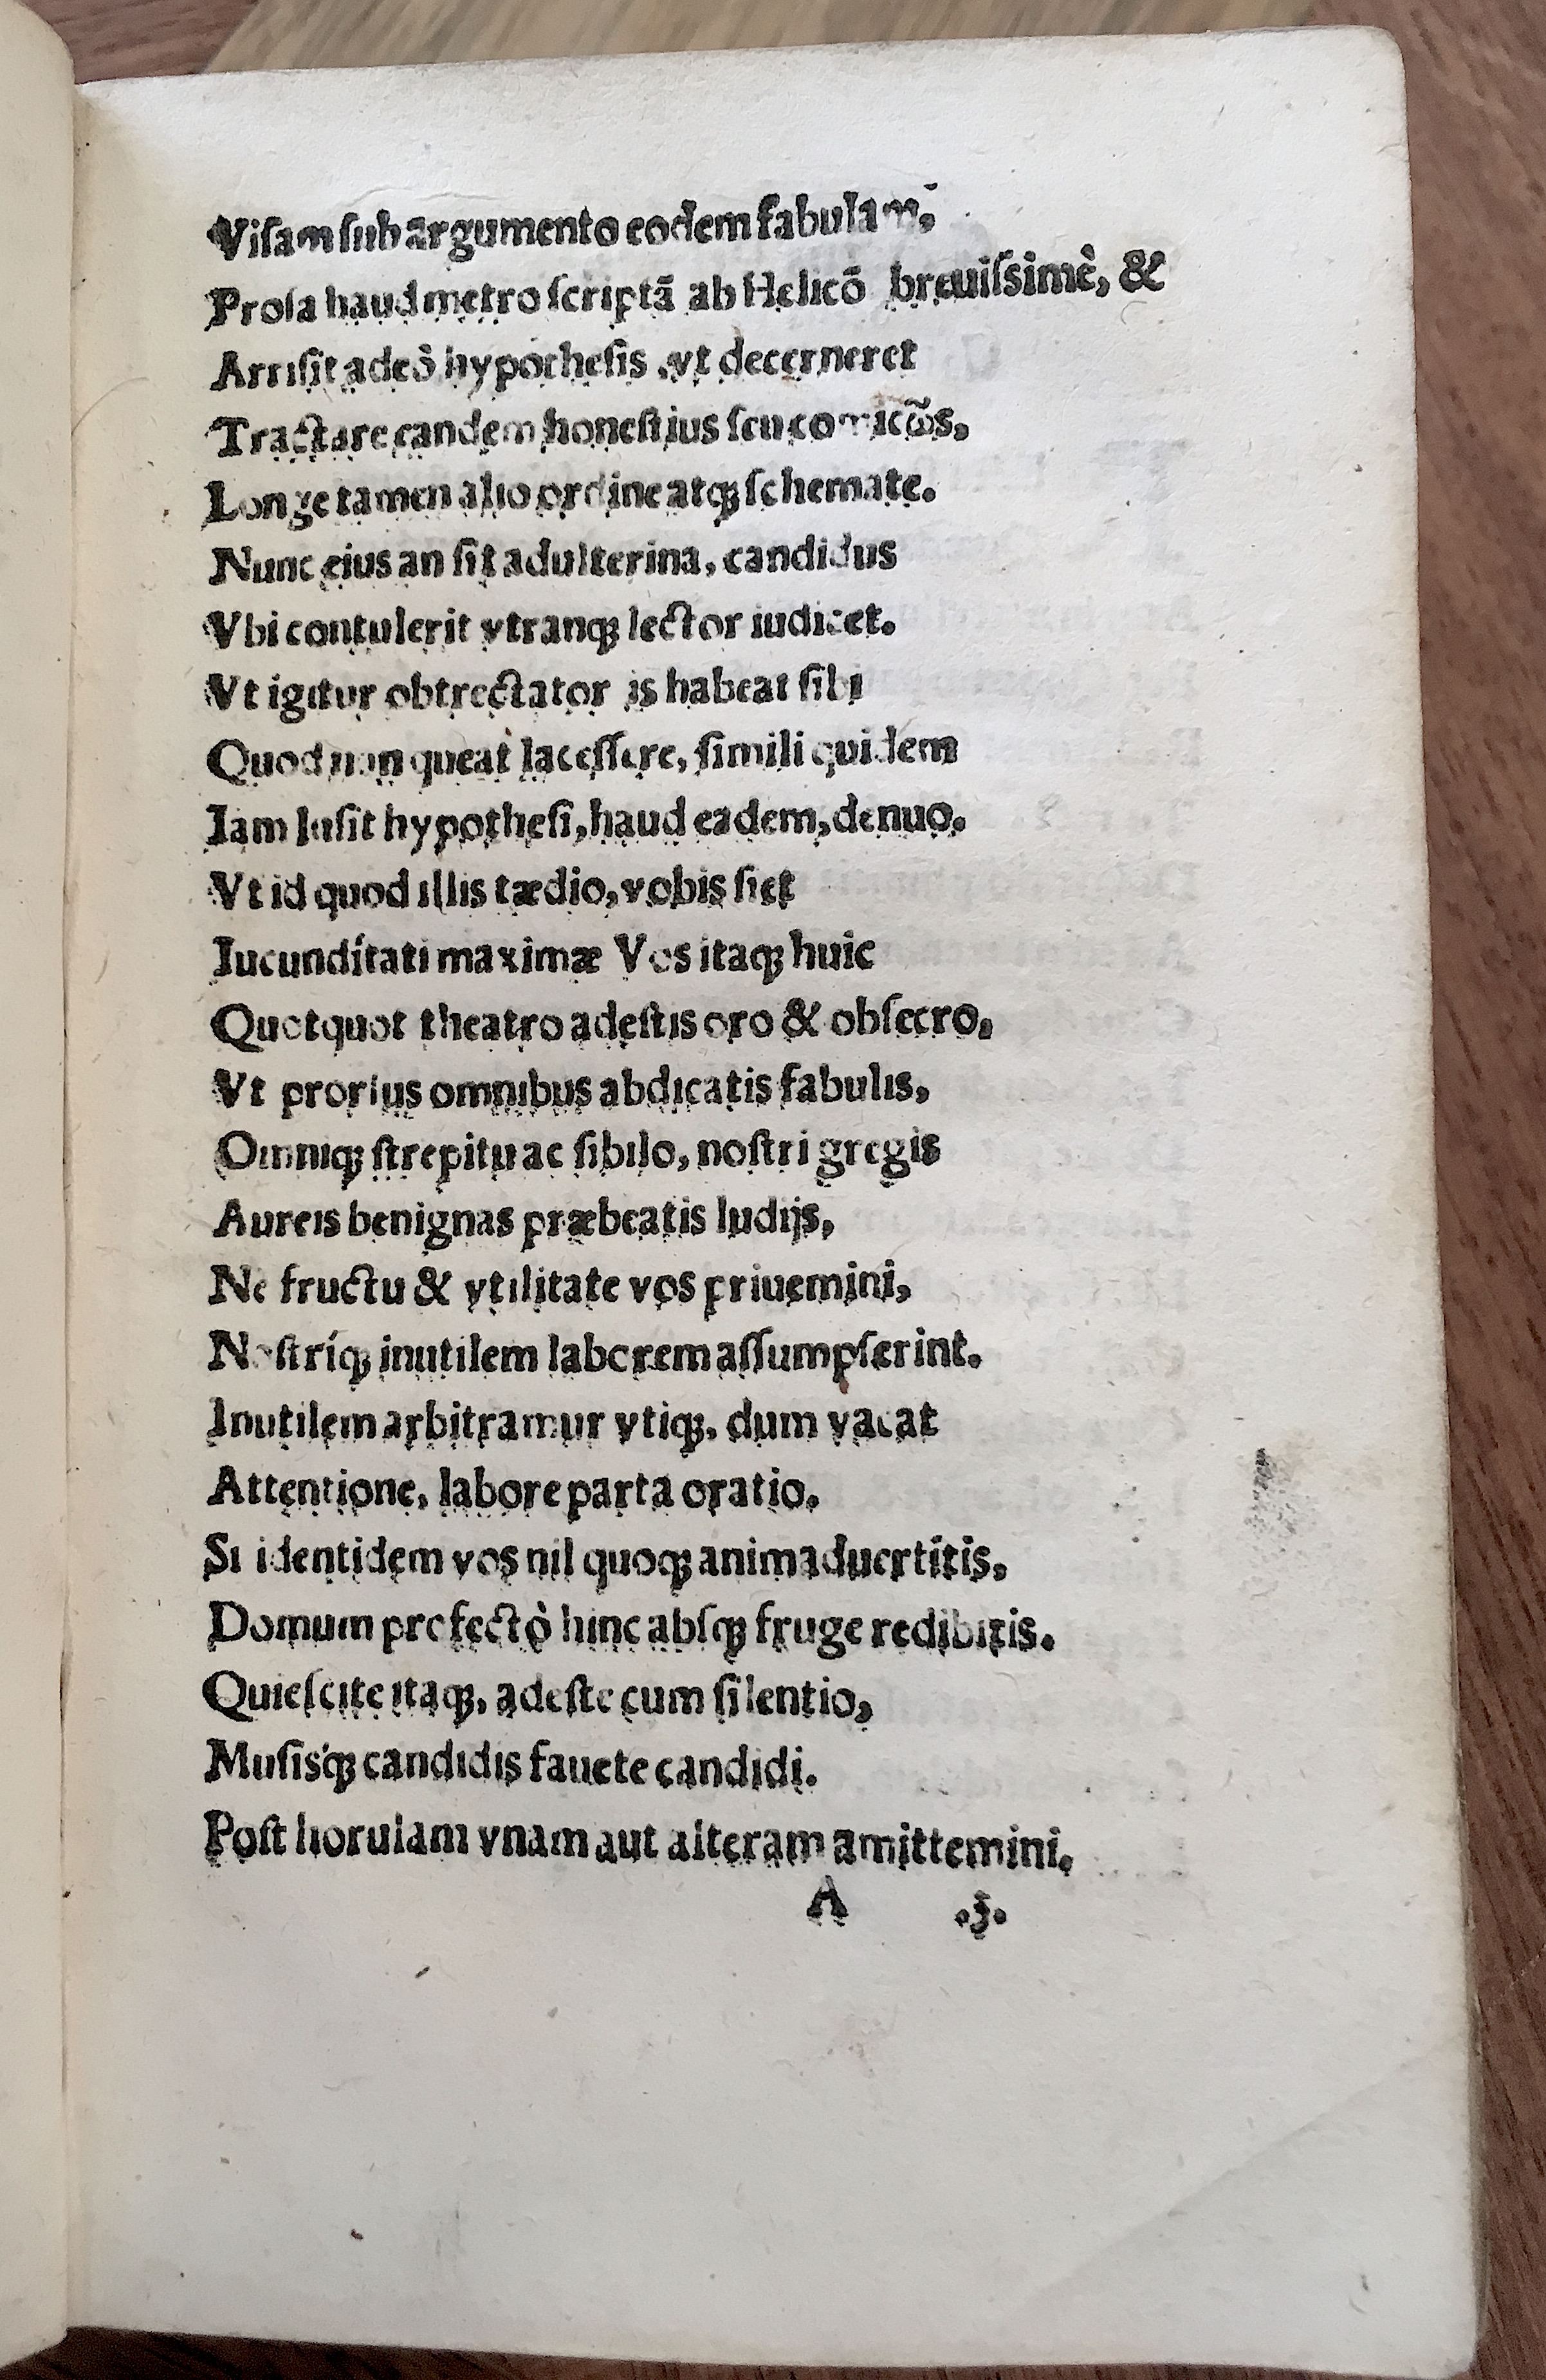 Viſam ſub argumento eodem fabulam,
Proſa haud metro ſcriptā ab Helicō breuiſsimè, &
Arriſit adeò hypotheſis, vt decerneret
Tractare eandem honeſtius ſeu comicω̃s,
Longe tamen alio ordine atqꝫ ſchemate.
Nunc eius an ſit adulterina, candidus
Vbi contulerit vtranqꝫ lector iudicet.
Vt igitur obtrectator is habeat ſibi
Quod non queat laceſſere, ſimili quidem
Iam luſit hypotheſi, haud eadem, denuo.
Vt id quod illis tædio, vobis ſiet
Iucundítati maximæ Vos itaqꝫ huic
Quotquot theatro adeſtis oro & obſecro,
Vt prorſus omnibus abdicatis fabulis,
Omniqꝫ ſtrepitu ac ſibilo, noſtri gregis
Aureis benignas præbeatis ludijs,
Ne fructu & vtilitate vos priuemini,
Noſtríqꝫ inutilem laborem aſſumpſerint.
Inutilem arbitramur vtiqꝫ, dum vacat
Attentione, labore parta oratio.
Si identidem vos nil quoqꝫ animaduertitis,
Domum profectò hinc abſqꝫ fruge redibitis.
Quieſcite itaqꝫ, adeſte cum ſilentio,
Muſis'qꝫ candidis fauete candidi.
Poſt horulam vnam aut alteram amittemini.
A .3.